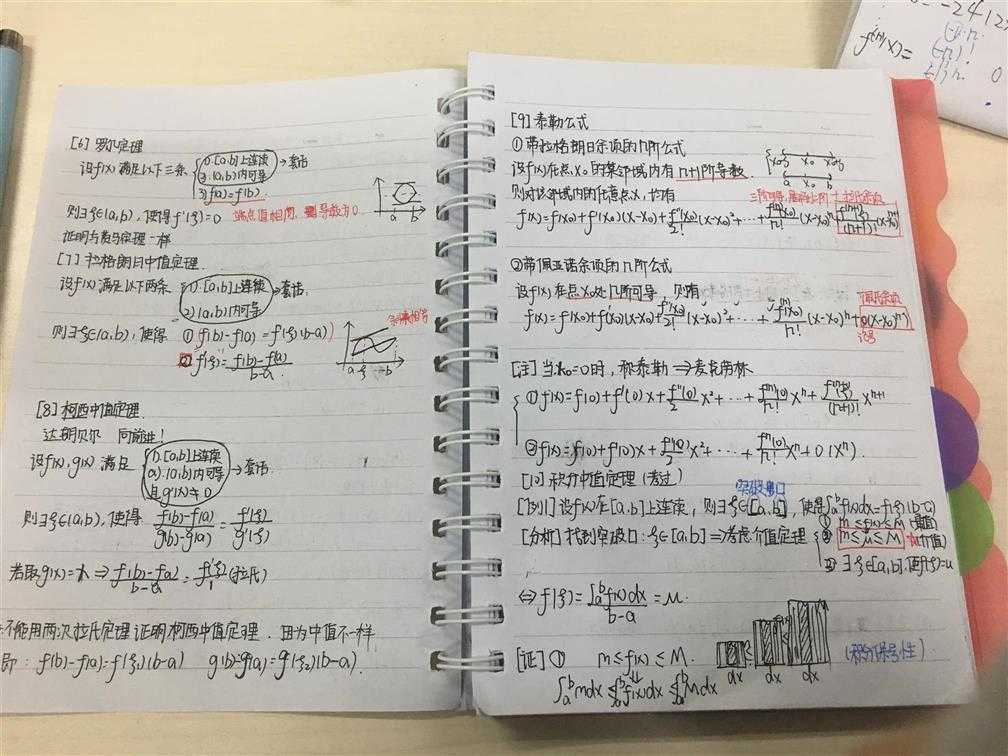 [6] 罗尔定理
设f(x)满足以下三条 1).[a,b]上连续 → 套话
2).(a,b)内可导
3) f(a)=f(b).
则∃ξ∈(a,b), 使得 f'(ξ)=0 端点值相同, 导数为0
证明与费马定理一样
[7] 拉格朗日中值定理.
设f(x)满足以下两条 1).[a,b]上连续 → 套话.
2)(a,b)内可导
则∃ξ∈(a,b), 使得 ① f(b)-f(a)=f'(ξ)(b-a)
② f'(ξ)=\frac{f(b)-f(a)}{b-a}
a ξ b
[8] 柯西中值定理.
达朗贝尔 向前进!
设f(x),g(x)满足 1).[a,b]上连续
2).(a,b)内可导 → 套话.
且g'(x)≠0
则∃ξ∈(a,b), 使得 \frac{f(b)-f(a)}{g(b)-g(a)}=\frac{f'(ξ)}{g'(ξ)}
若取g(x)=x ⇒ \frac{f(b)-f(a)}{b-a}=\frac{f'(ξ)}{1} (拉氏)
不能用两次拉氏定理证明柯西中值定理. 因为中值不一样
即: f(b)-f(a)=f'(ξ₁)(b-a) g(b)-g(a)=g'(ξ₂)(b-a)
[9] 泰勒公式
①带拉格朗日余项的n阶公式
设f(x)在点x₀的某邻域内有n+1阶导数.
a x₀ b
则对该邻域内的任意点x, 均有
拉氏余项
f(x)=f(x₀)+f'(x₀)(x-x₀)+\frac{f''(x₀)}{2!}(x-x₀)²+⋯+\frac{f^{(n)}(x₀)}{n!}(x-x₀)ⁿ+\frac{f^{(n+1)}(ξ)}{(n+1)!}(x-x₀)^{n+1}
②带佩亚诺余项的n阶公式
设f(x)在点x₀处n阶可导, 则有
佩氏余项
f(x)=f(x₀)+f'(x₀)(x-x₀)+\frac{f''(x₀)}{2!}(x-x₀)²+⋯+\frac{f^{(n)}(x₀)}{n!}(x-x₀)ⁿ+o((x-x₀)ⁿ)
[注] 当x₀=0时, 称泰勒 ⇒ 麦克劳林
① f(x)=f(0)+f'(0)x+\frac{f''(0)}{2}x²+⋯+\frac{f^{(n)}(0)}{n!}xⁿ+\frac{f^{(n+1)}(ξ)}{(n+1)!}x^{n+1}
② f(x)=f(0)+f'(0)x+\frac{f''(0)}{2!}x²+⋯+\frac{f^{n}(0)}{n!}xⁿ+o(xⁿ).
[10] 积分中值定理 (考过)
突破口
[例1] 设f(x)在[a,b]上连续, 则∃ξ∈[a,b], 使得∫ₐᵇf(x)dx=f(ξ)(b-a)
[分析] 找到突破口: ξ∈[a,b] ⇒ 考虑介值定理 ① m≤f(x)≤M
② m≤μ≤M (介值)
③ ∃ξ∈[a,b], 使f(ξ)=μ
⇔ f(ξ)=\frac{∫ₐᵇf(x)dx}{b-a}=μ.
[证] ① m≤f(x)≤M.
dx dx dx
(积分保号性)
∫ₐᵇmdx≤∫ₐᵇf(x)dx≤∫ₐᵇMdx